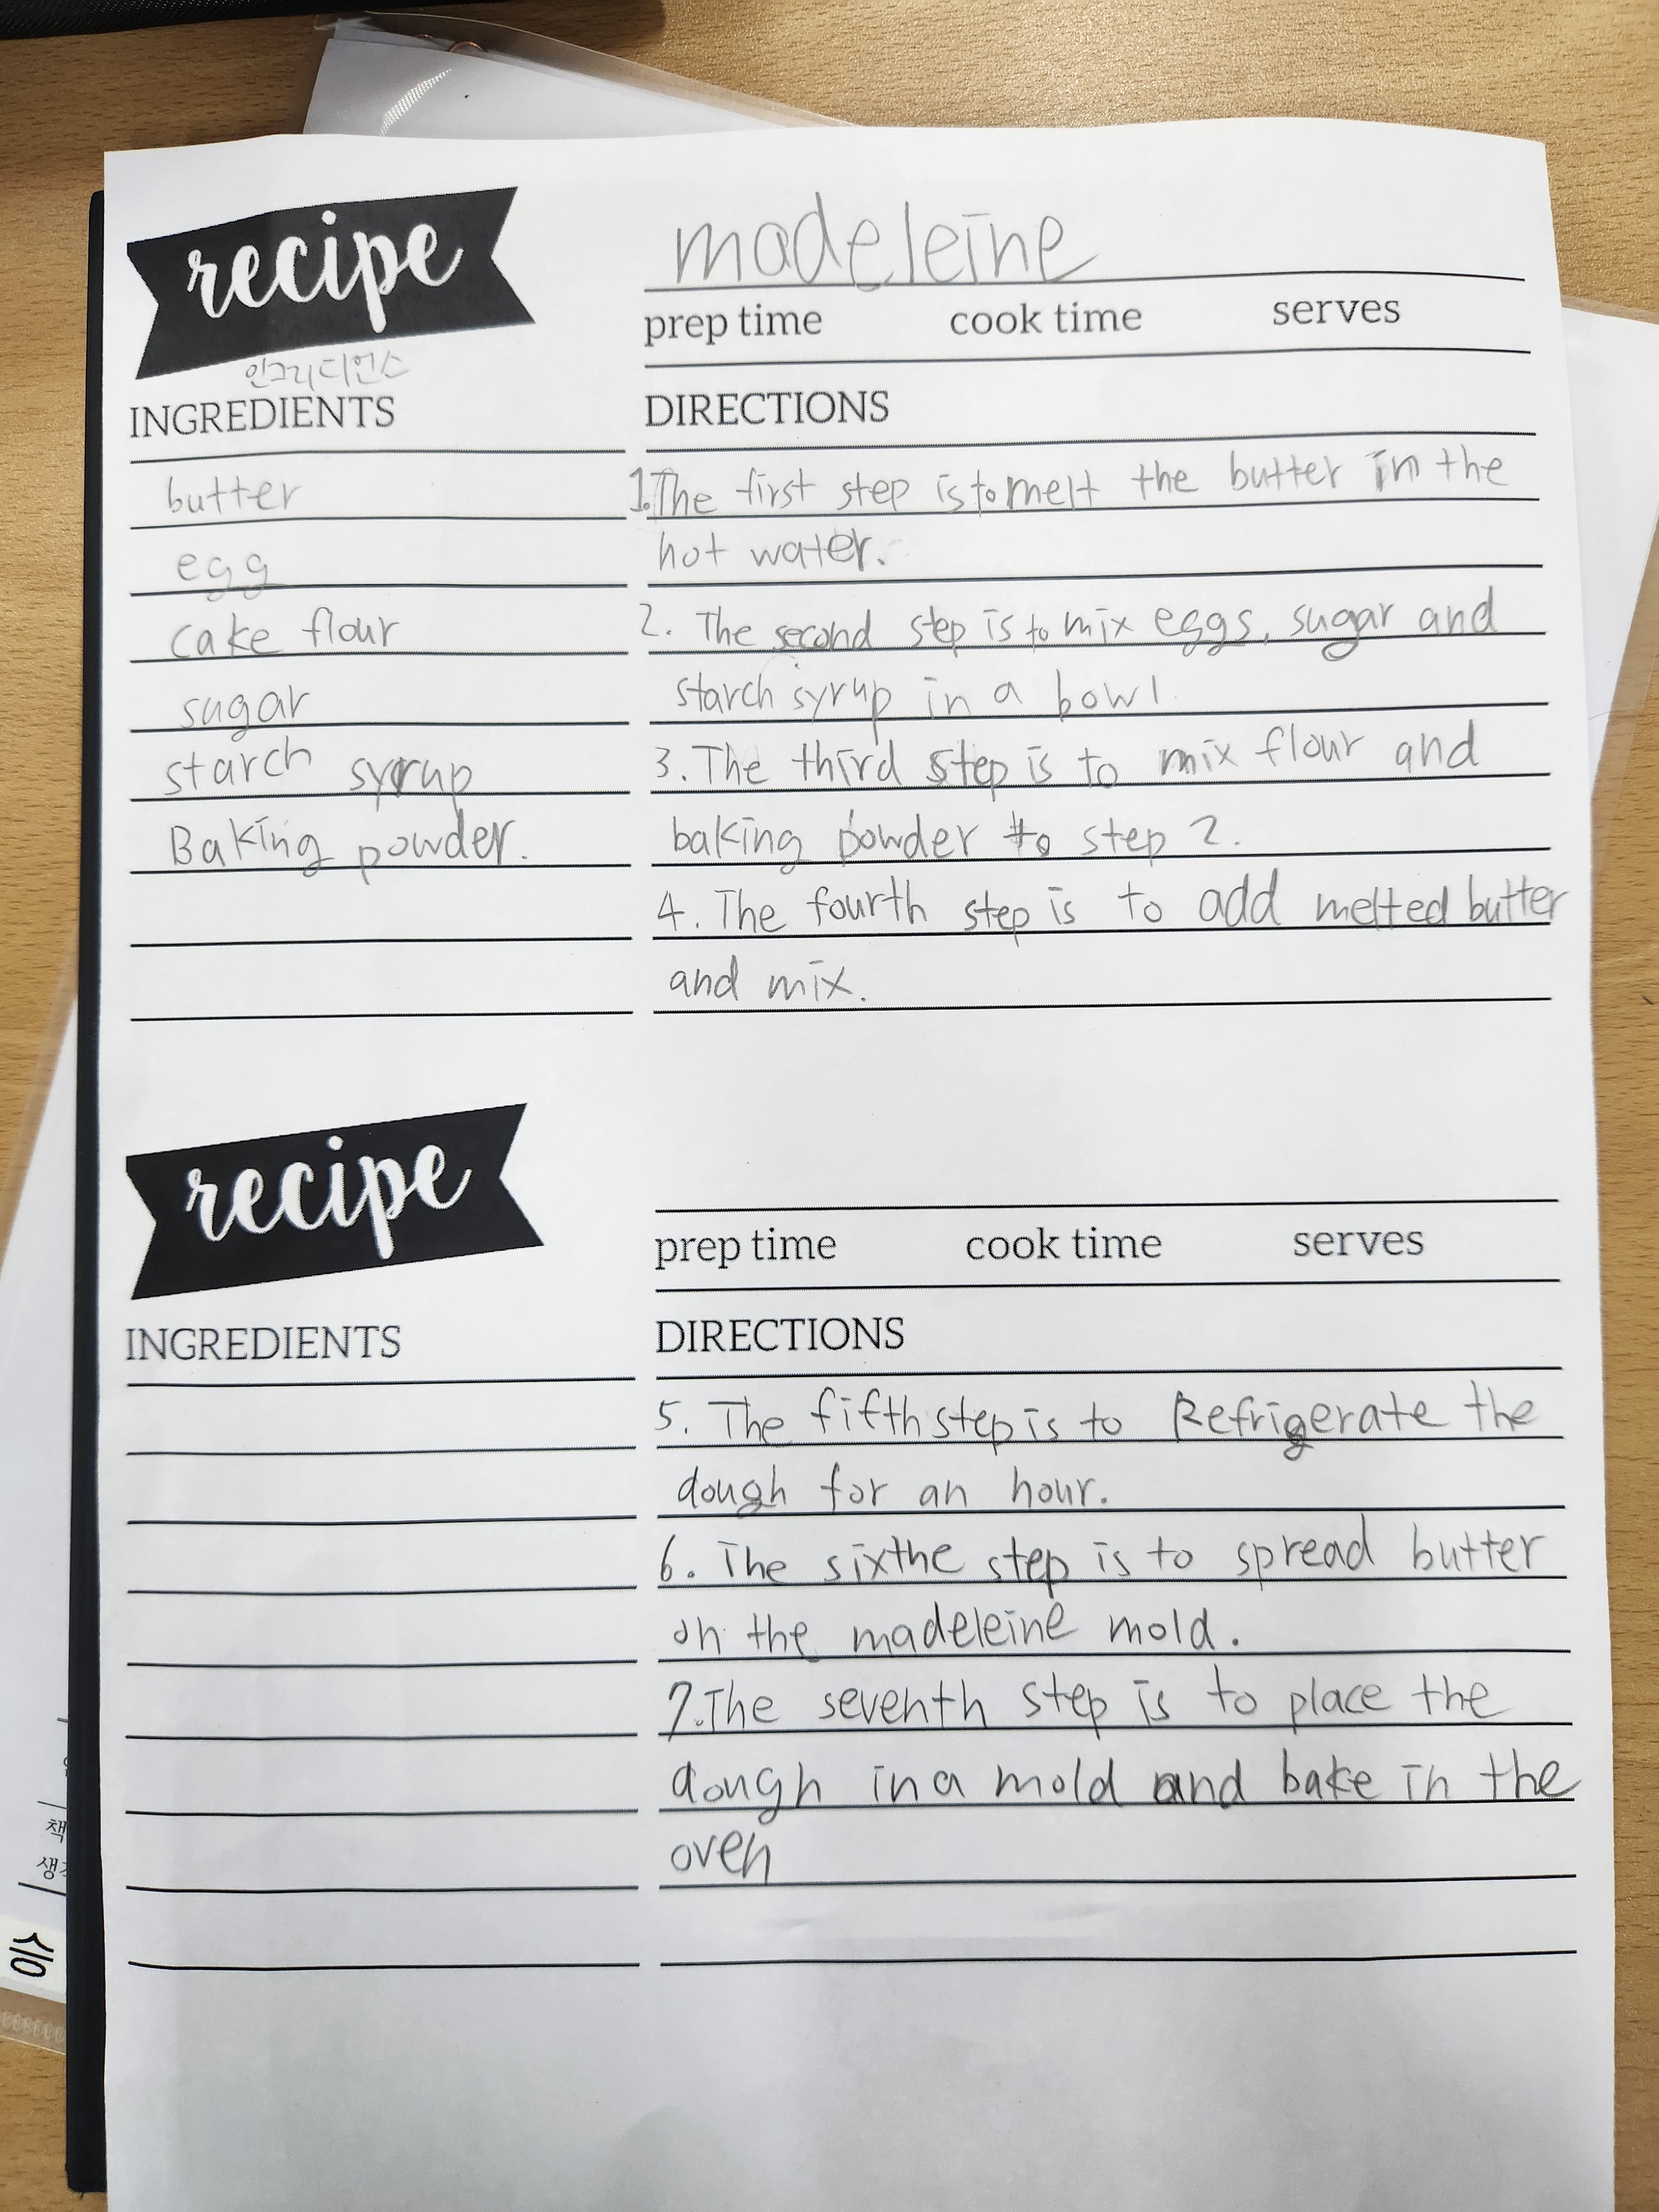 recipe
madeleine
prep time cook time serves
인그리디언스
INGREDIENTS
butter
egg
cake flour
sugar
starch syrup
Baking powder.
DIRECTIONS
1.The first step is to melt the butter in the
hot water.
2. The second step is to mix eggs, sugar and
starch syrup in a bowl
3. The third step is to mix flour and
baking powder to step 2.
4. The fourth step is to add melted butter
and mix.
recipe
prep time cook time serves
INGREDIENTS
DIRECTIONS
5. The fifth step is to Refrigerate the
dough for an hour.
6. The sixthe step is to spread butter
on the madeleine mold.
7.The seventh step is to place the
dough in a mold and bake in the
oven
책
승